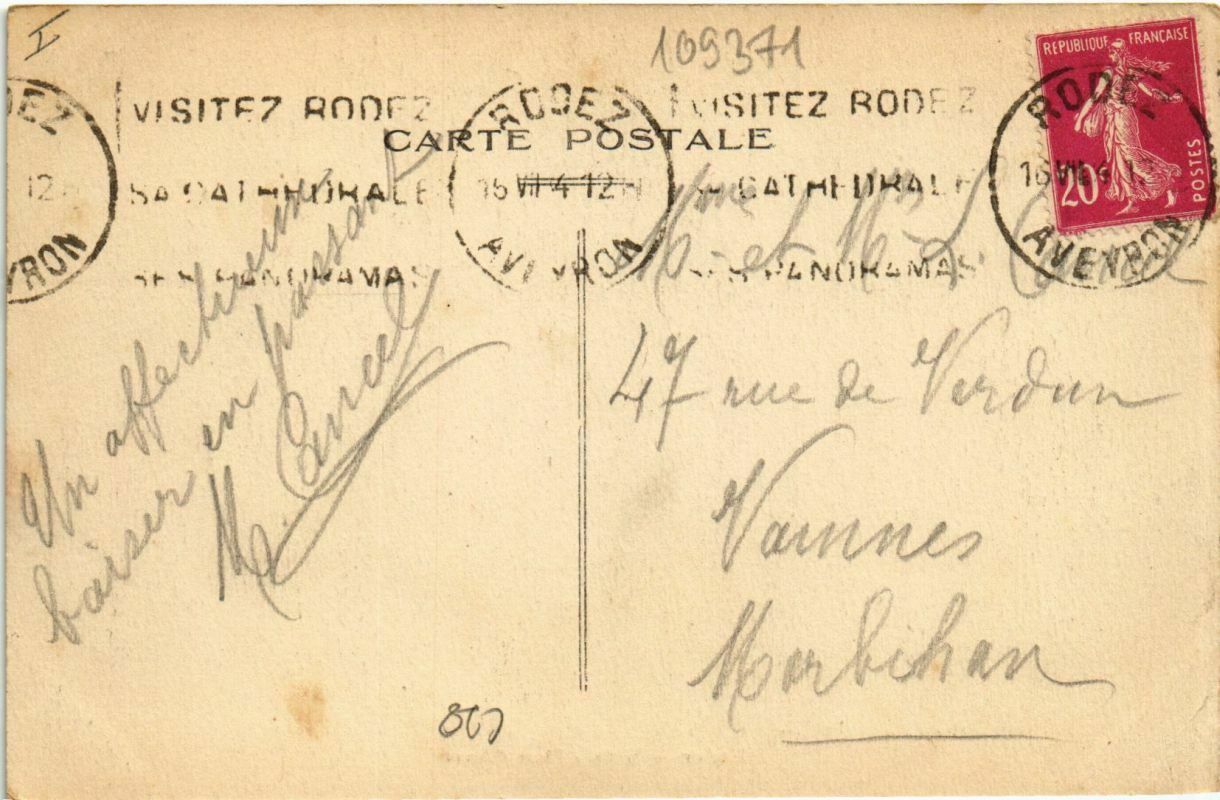 I
109371
REPUBLIQUE FRANÇAISE
20
POSTES
RODEZ
16 VII 4 12H
AVEYRON
VISITEZ RODEZ
SA CATHEDRALE
SES PANORAMAS
RODEZ
16 VII 4 12H
AVEYRON
VISITEZ RODEZ
SA CATHEDRALE
SES PANORAMAS
RODEZ
AVEYRON
CARTE POSTALE
Un affectueux
baiser en passant
M.
Mr et Mme
47 rue de Verdun
Vannes
Morbihan